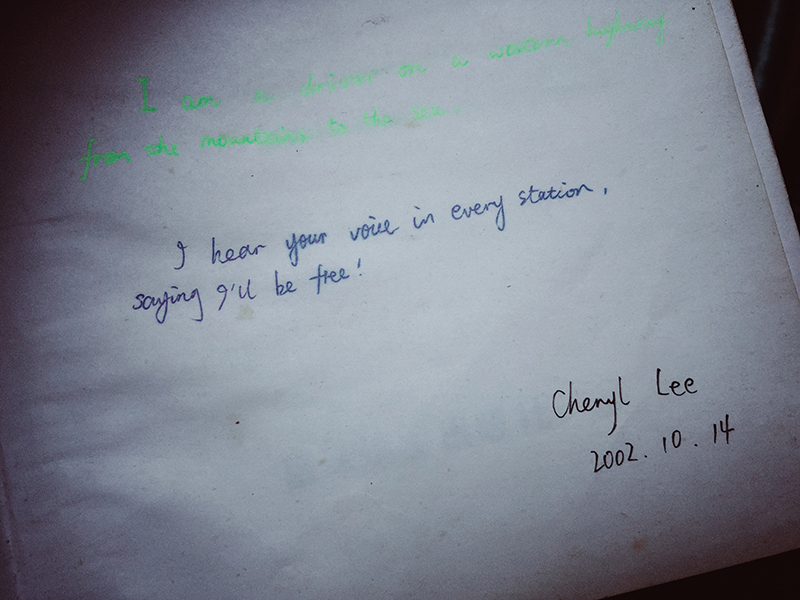 I am a driver on a western highway
from the mountains to the sea.
I hear your voice in every station,
saying I'll be free!
Cheryl Lee
2002.10.14